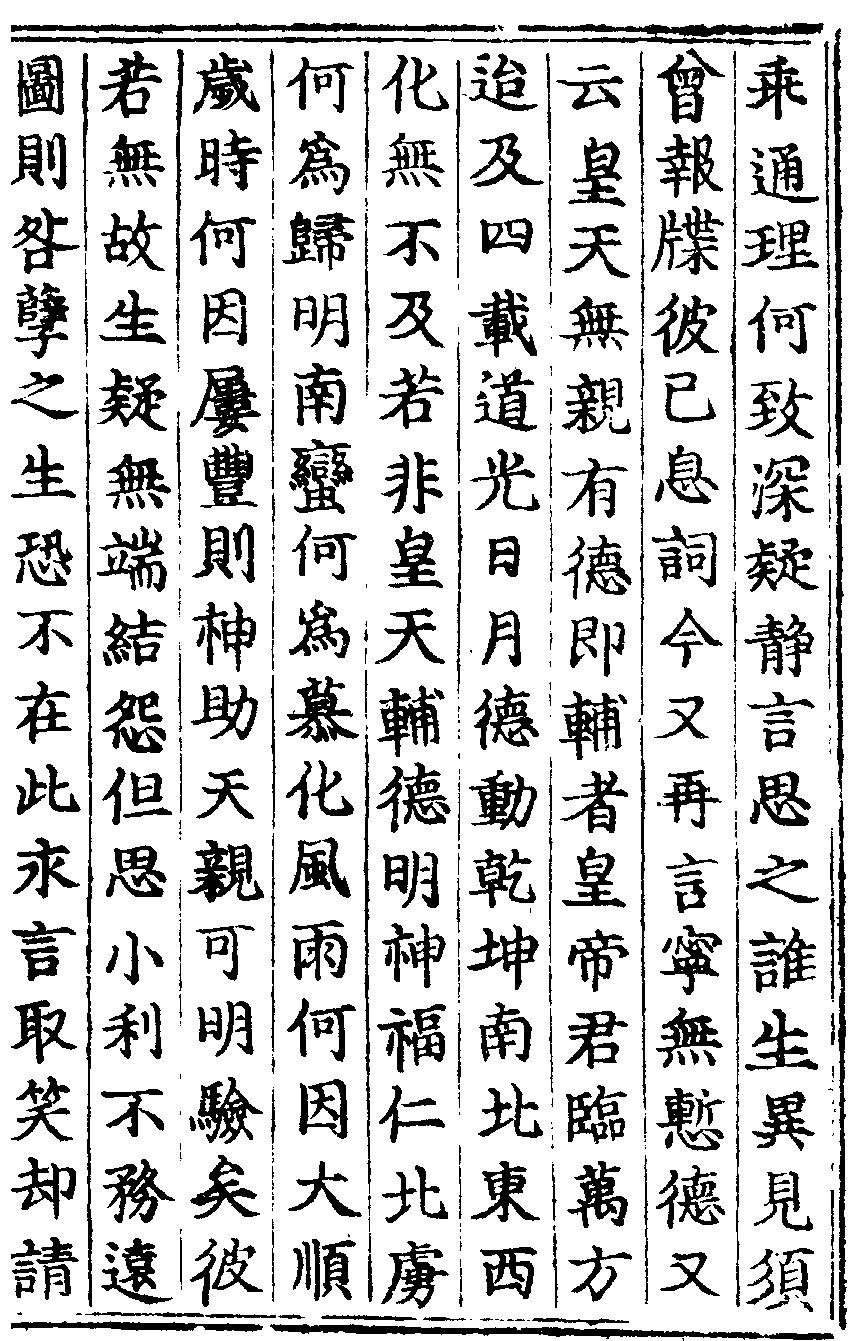 乘通理何致深疑静言思之誰生異見須
曾報牒彼已息詞今又再言寧無慙德又
云皇天無親有德即輔者皇帝君臨萬方
迨及四載道光日月德動乾坤南北東西
化無不及若非皇天輔德明神福仁北虜
何為歸明南蠻何為慕化風雨何因大順
歲時何因屢豐則神助天親可明驗矣彼
若無故生疑無端結怨但思小利不務遠
圖則咎孽之生恐不在此求言取笑却請